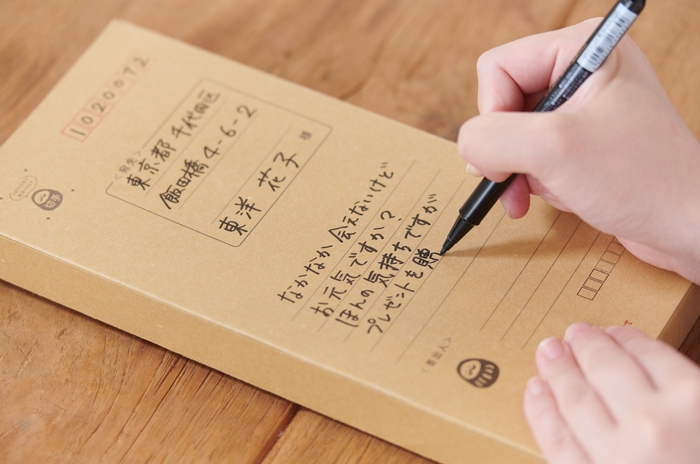 1020072
<宛先>
東京都 千代田区
飯田橋 4-6-2
東洋 花子 様
切手
なかなか 会えないけど
お元気ですか?
ほんの気持ちですが
プレゼントを贈
<差出人>